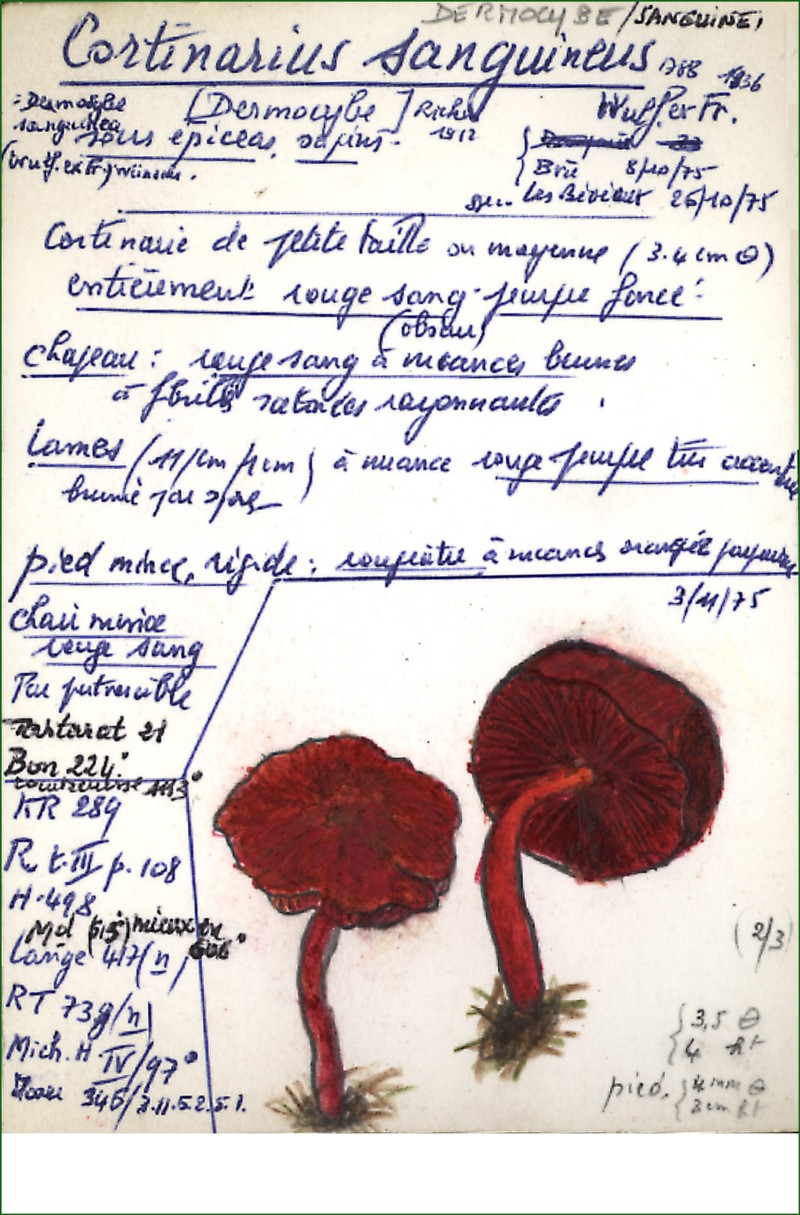 DERMOCYBE/SANGUINEI
Cortinarius sanguineus 788 1936
=Dermocybe [Dermocybe] Ricken Wulf. ex Fr.
sanguinea sous épicéas, sapins. 1912
(Wulf. ex Fr.) Wünsche. Brü 8/10/75
Les Bévieux 26/10/75
Cortinaire de petite taille ou moyenne (3.4 cm Θ)
entièrement rouge sang-pourpre foncé
(obscur)
chapeau : rouge sang à nuances brunes
à fibrilles satinées rayonnantes.
Lames (11/cm/1cm) à nuance rouge pourpre très accentué
brunie par spores
pied mince, rigide : rougeâtre à nuances orangée
3/11/75
chair mince
rouge sang
Peu putrescible
Tartarat 21
Bon 224°
1113°
KR 289
R t. III p. 108
H. 498
Md (515°) mieux en
606°
Lange 417(n)
RT 73g(n)
Mich. H IV/97°
346/3.11.5.2.5.1.
(2/3)
3,5 Θ
4 ht
pied. 4 mm Θ
3 cm ht